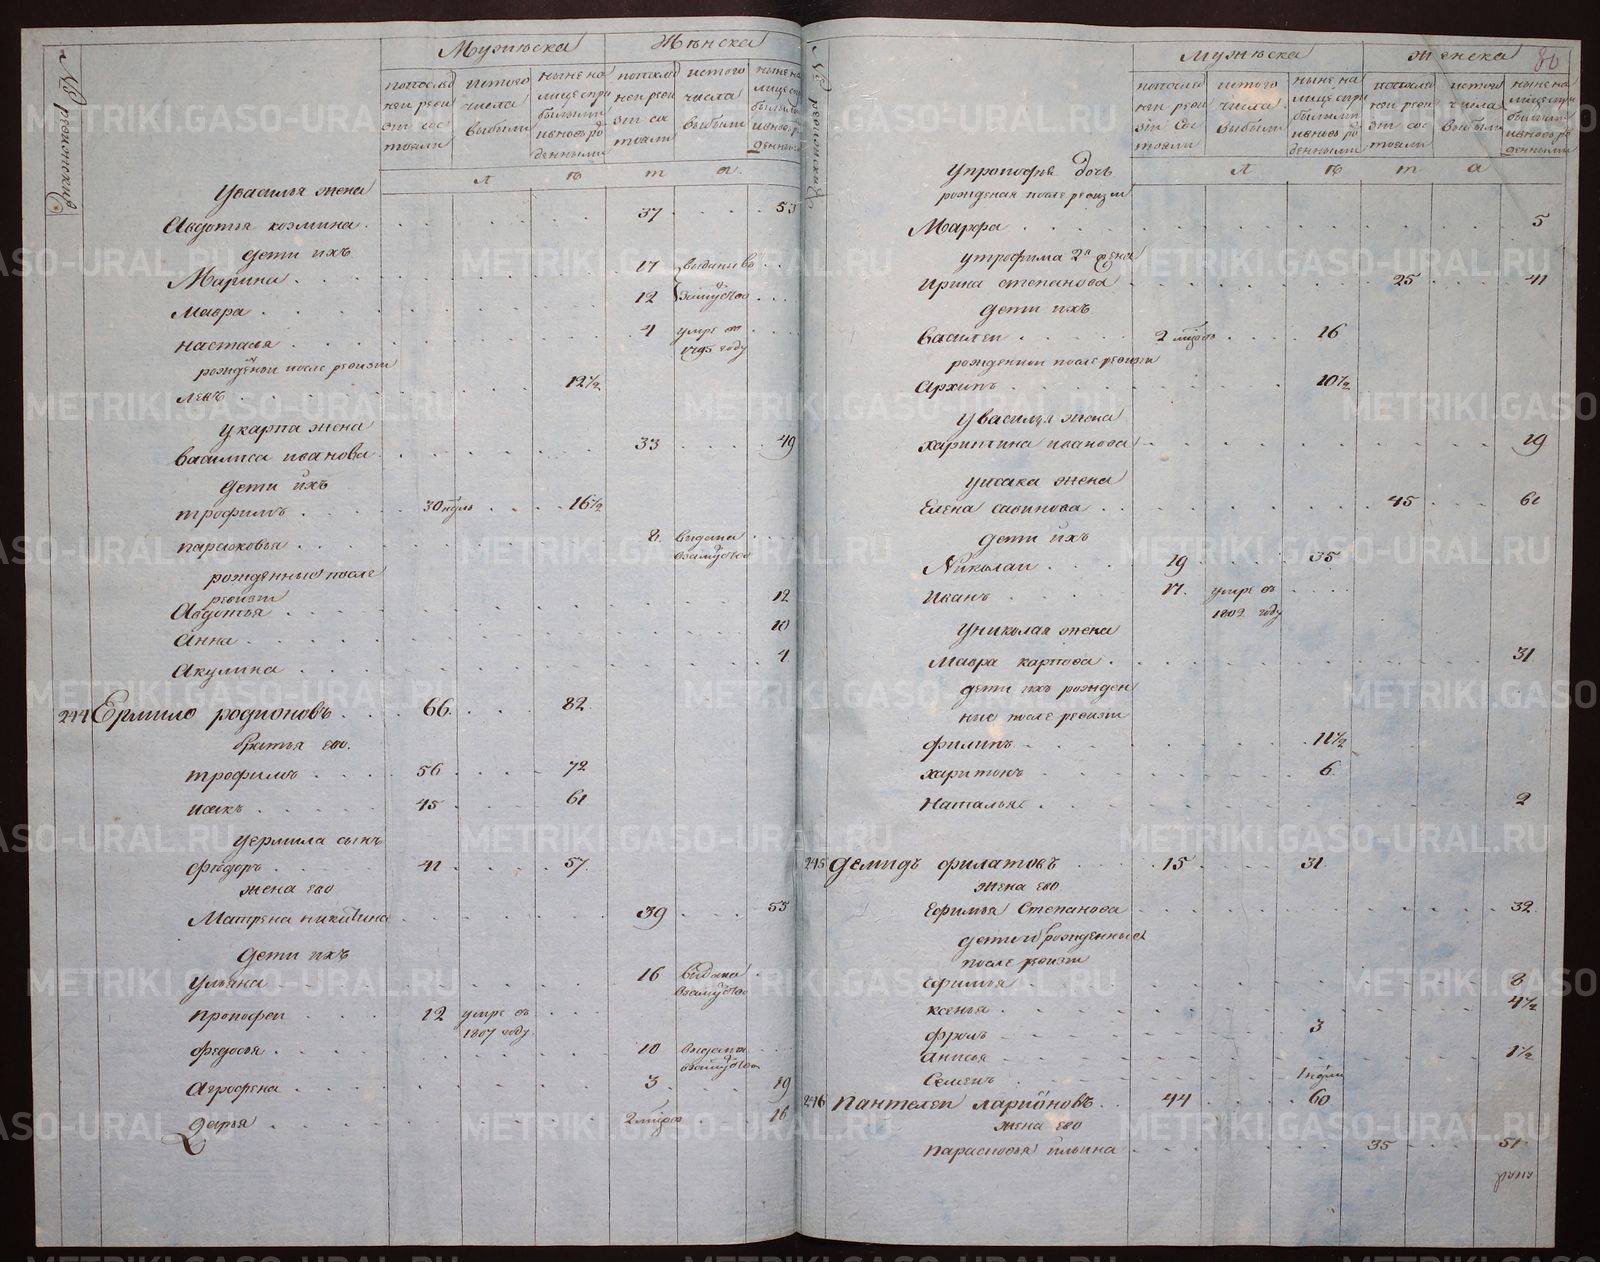 Мужеска Женска
по последней ревизии состояли
из того числа выбыли
ныне на лицо с прибылыми и вновь рожденными
по последней ревизии состояли
из того числа выбыли
ныне на лицо с прибылыми и вновь рожденными
л ѣ т а
У василья жена
Авдотья козмина 37 53
дети ихъ
Марина 17 выданы въ
Мавра 12 замуство
настасья 4 умре въ 1795 году
рожденой после ревизи
левъ 12½
у карпа жена
василиса иванова 33 49
дети ихъ
трофимъ 30 нѣдль 16½
парасковья 8 выдана взамуство
рожденные после
ревизи
Авдотья 12
Анна 10
Акулина 4
244 Ермило родионовъ 66 82
братья ево
трофимъ 56 72
исакъ 45 61
у ермила сынъ
фёдоръ 41 57
жена ево
Матрена никитина 39 55
дети ихъ
Ульяна 16 выдана взамуство
прокофеи 12 умре въ 1807 году
федосья 10 выдана взамуство
Аграфена 3 19
дарья 2 мцов 16
80
Мужеска Женска
по последней ревизии состояли
из того числа выбыли
ныне на лицо с прибылыми и вновь рожденными
по последней ревизии состояли
из того числа выбыли
ныне на лицо с прибылыми и вновь рожденными
л ѣ т а
У прокофья дочь
рожденая после ревизи
Марфа 5
у трофима 2я жена
Ирина степанова 25 41
дети ихъ
василеи 2 мцовъ 16
рожденнои после ревизи
архипъ 10½
у василья жена
харитина иванова 19
у исака жена
Елена савинова 45 61
дети ихъ
Николаи 19 35
Иванъ 17 умре въ 1802 году
у николая жена
Мавра карпова 31
дети ихъ рожден
ные после ревизи
филипъ 11½
харитонъ 6
Наталья 2
245 демидъ филатовъ 15 31
жена ево
Ефимья Степанова 32
дети ихъ рожденные
после ревизи
Ефимья 8
ксенья 4½
фролъ 3
анисья 1½
Семенъ 1 нѣдли
246 пантелеи ларионовъ 44 60
жена ево
парасковья ильина 35 51
METRIKI.GASO-URAL.RU